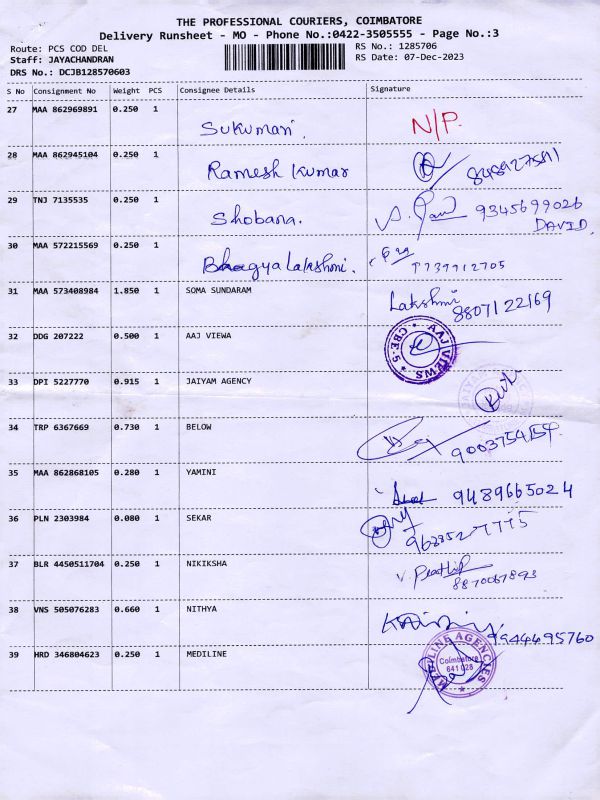 THE PROFESSIONAL COURIERS, COIMBATORE
Delivery Runsheet - MO - Phone No.:0422-3505555 - Page No.:3
Route: PCS COD DEL RS No.: 1285706
Staff: JAYACHANDRAN RS Date: 07-Dec-2023
DRS No.: DCJB128570603
S No Consignment No Weight PCS Consignee Details Signature
27 MAA 862969891 0.250 1 Sukumari. N/P.
28 MAA 862945104 0.250 1 Ramesh Kumar
29 TNJ 7135535 0.250 1 Shobana. 9345699026
DAVID.
30 MAA 572215569 0.250 1 Bhagyalakshmi.
31 MAA 573408984 1.850 1 SOMA SUNDARAM Lakshmi
8807122169
32 DDG 207222 0.500 1 AAJ VIEWA AAJ VIEWS CBE-5
33 DPI 5227770 0.915 1 JAIYAM AGENCY
34 TRP 6367669 0.730 1 BELOW
35 MAA 862868105 0.280 1 YAMINI 9489665024
36 PLN 2303984 0.080 1 SEKAR
37 BLR 4450511704 0.250 1 NIKIKSHA
38 VNS 505076283 0.660 1 NITHYA 9444495760
39 HRD 346804623 0.250 1 MEDILINE MEDILINE AGENCIES
Coimbatore
641 028